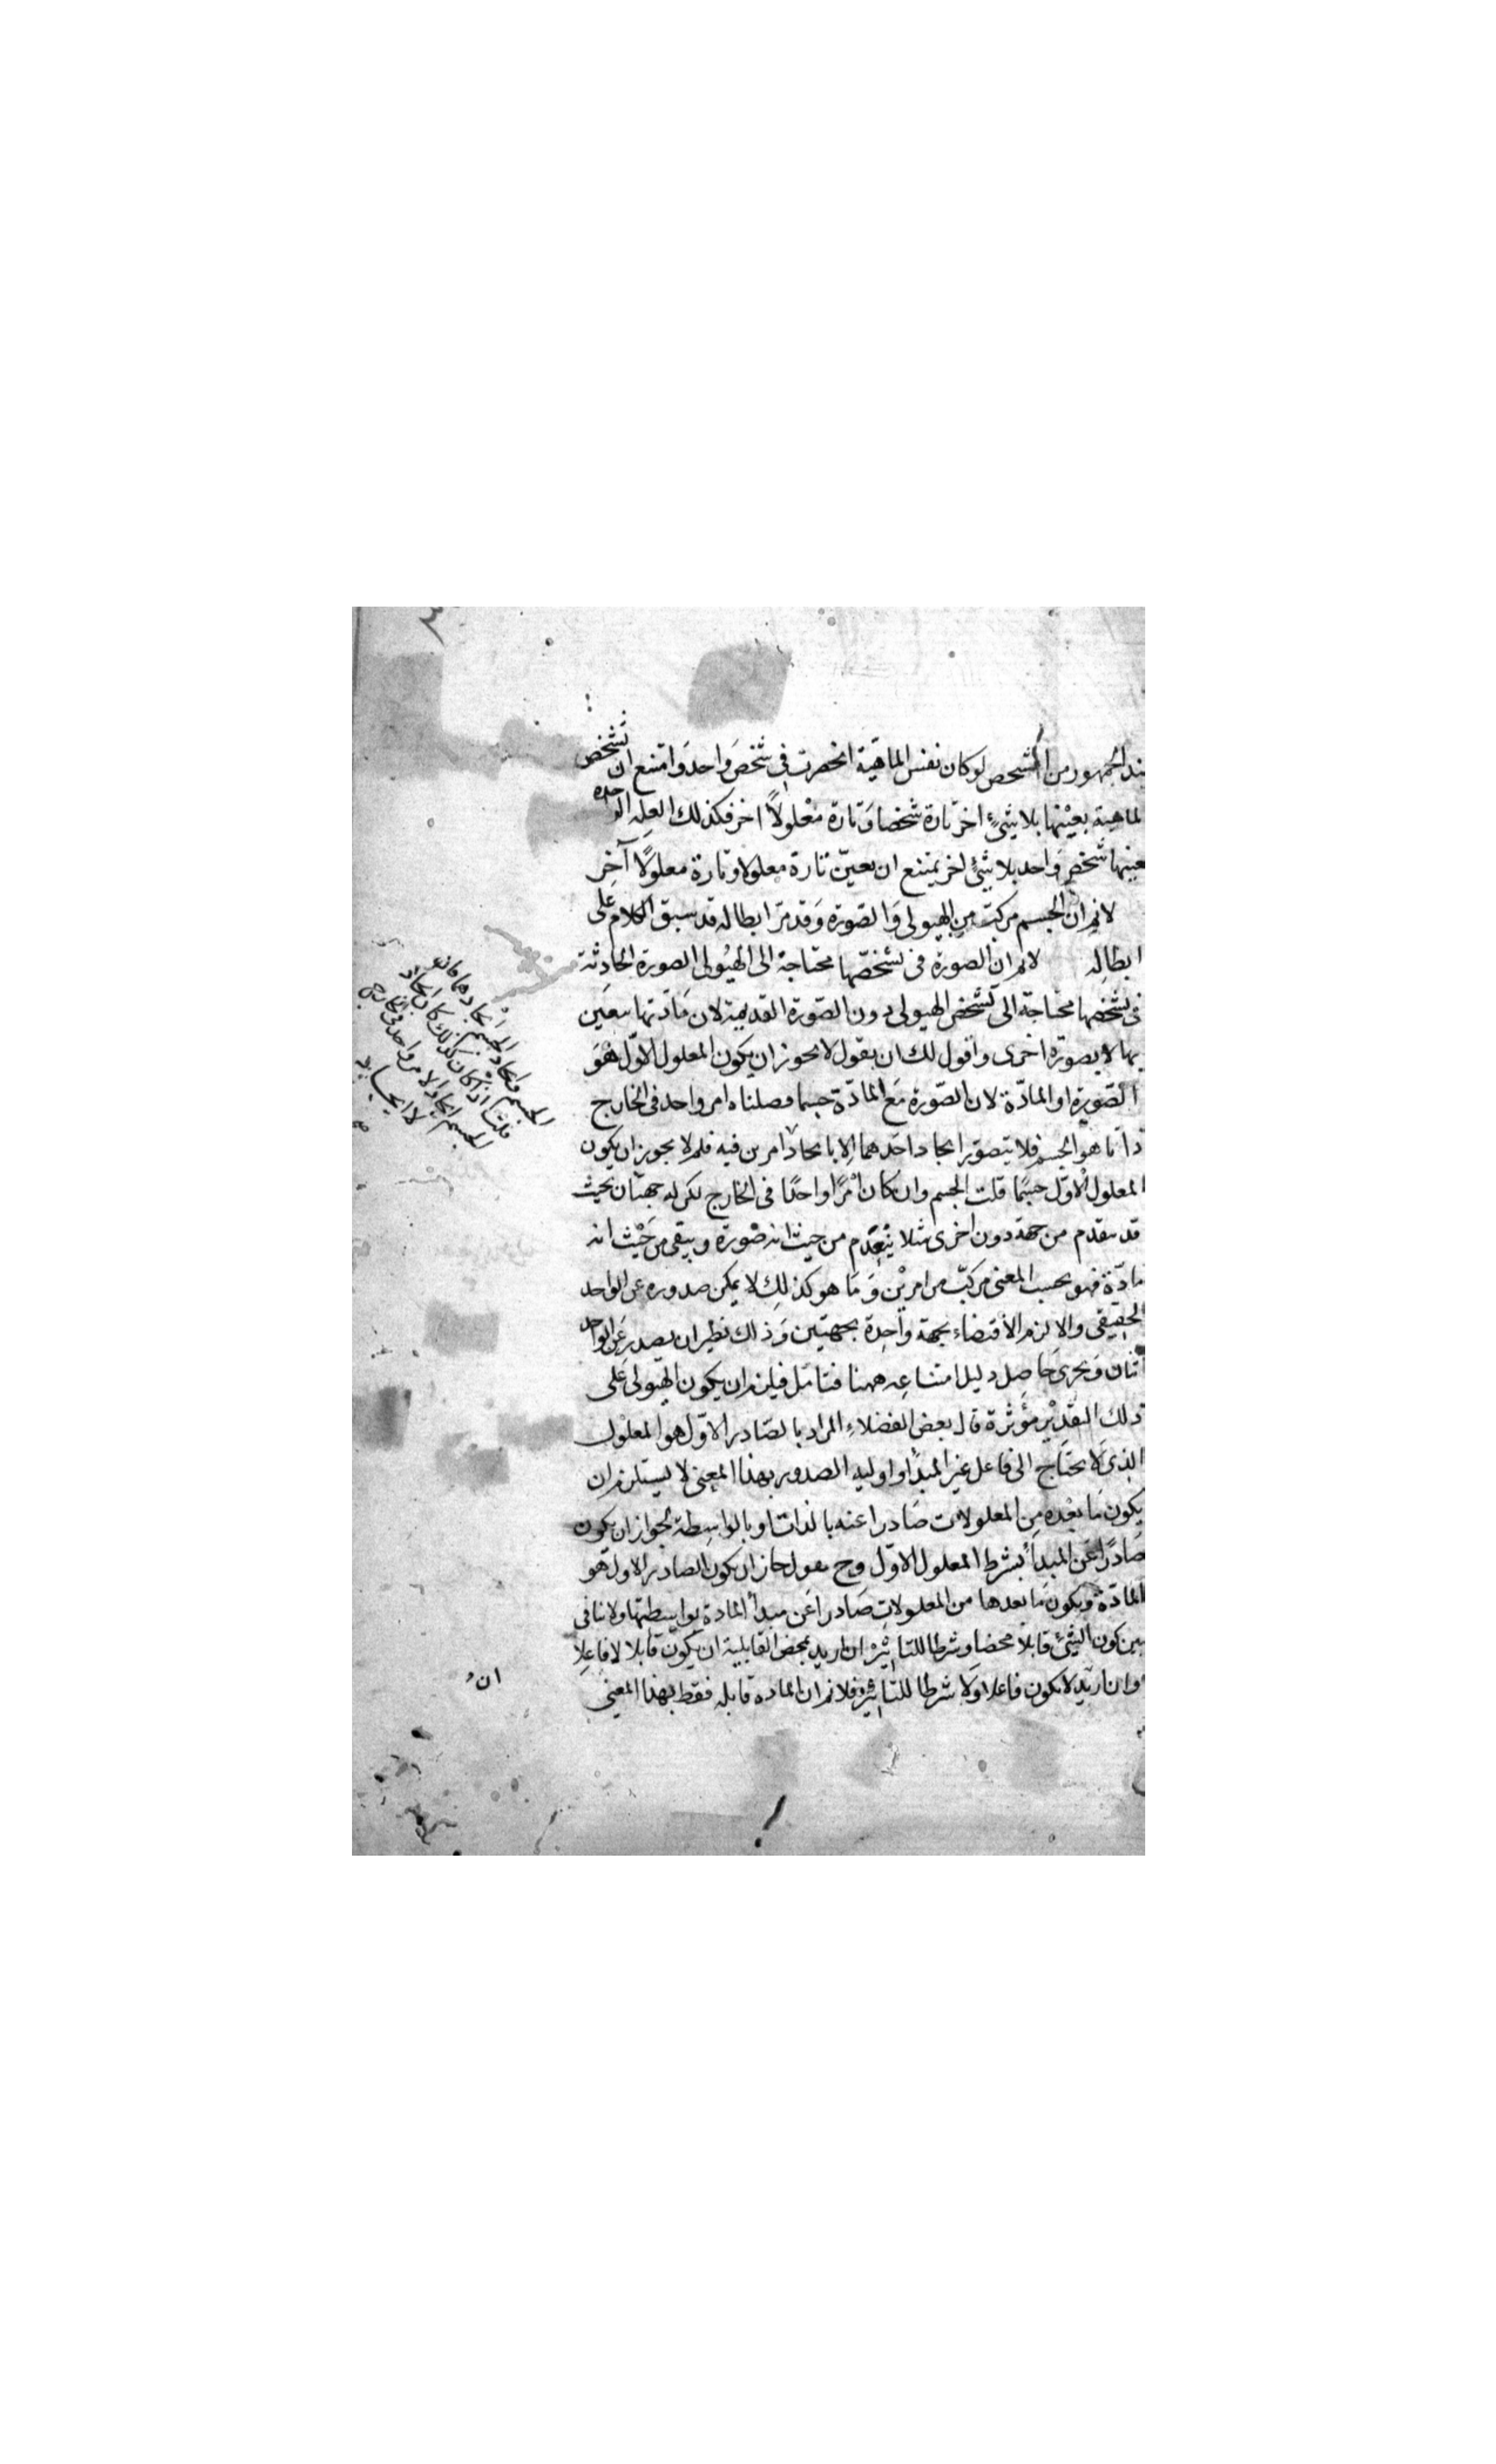 ند الجمهور من الشخص لو كان نفس الماهية انحصرت فى شخص واحد وامتنع ان تشخص
لماهية بعينها بلا شئ اخر تارة شخصا وتارة معلولا اخر فكذلك العله الواحده
بعينها شخص واحد بلا شئ اخر يمتنع ان يعين تارة معلولا وتارة معلولا آخر
لانم ان الجسم مركب من الهيولى والصورة وقد مر ابطاله قد سبق الكلام على
ابطاله لانم ان الصورة فى تشخصها محتاجة الى الهيولى الصورة الحادثة
فى تشخصها محتاجة الى تشخص الهيولى دون الصورة القديمة لان مادتها تتعين
بها لا بصورة اخرى واقول لك ان تقول لا يجوز ان يكون المعلول الاول هو
الصورة او المادة لان الصورة مع المادة حسبما فصلناه امر واحد فى الخارج
ذاتا هو الجسم فلا يتصور ايجاد احدهما الا بايجاد امرين فيه فلم لا يجوز ان يكون
المعلول الاول جسما قلت الجسم وان كان امرا واحدا فى الخارج لكن له جهتان بحيث
قد ينعدم من جهة دون اخرى مثلا ينعدم من حيث انه صورة ويبقى من حيث انه
مادة فهو بحسب المعنى مركب من امرين وما هو كذلك لا يمكن صدوره عن الواحد
الحقيقى والا لزم الاقتضاء بجهة واحدة بجهتين وذلك نظير ان يصدر عن الواحد
اثنان وبحرى حاصل دليل امتناعه ههنا فتامل فيلزم ان يكون الهيولى على
ذلك التقدير مؤثرة قال بعض الفضلاء المراد بالصادر الاول هو المعلول
الذى لا يحتاج الى فاعل غير المبدأ واوليه الصدور بهذا المعنى لا يستلزم ان
يكون ما بعده من المعلولات صادرا عنه بالذات او بالواسطة لجواز ان يكون
صادرا عن المبدأ بشرط المعلول الاول وح نقول جاز ان يكون الصادر الاول هو
المادة ويكون ما بعدها من المعلولات صادرا عن مبدأ المادة بواسطتها ولا تنافى
بين كون الشئ قابلا محضا وشرطا للتاثير ان اريد بمحض القابلية ان يكون قابلا لا فاعلا
وان اريد لا يكون فاعلا ولا شرطا للتاثير فلانم ان الماده قابله فقط بهذا المعنى
ايجادهما فان
الجسم وايجاد الجسم كان ايجاد
قلت اذا كان كذلك فى الخارج
الجسم ايجاد الامر واحد
ان